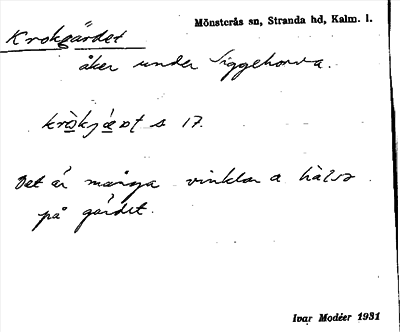 Krokgärdet
Mönsterås sn, Stranda hd, Kalm. l.
åker under Siggehorva.
s 17.
Det är många vinklar
på gärdet.
Ivar Modéer 1931